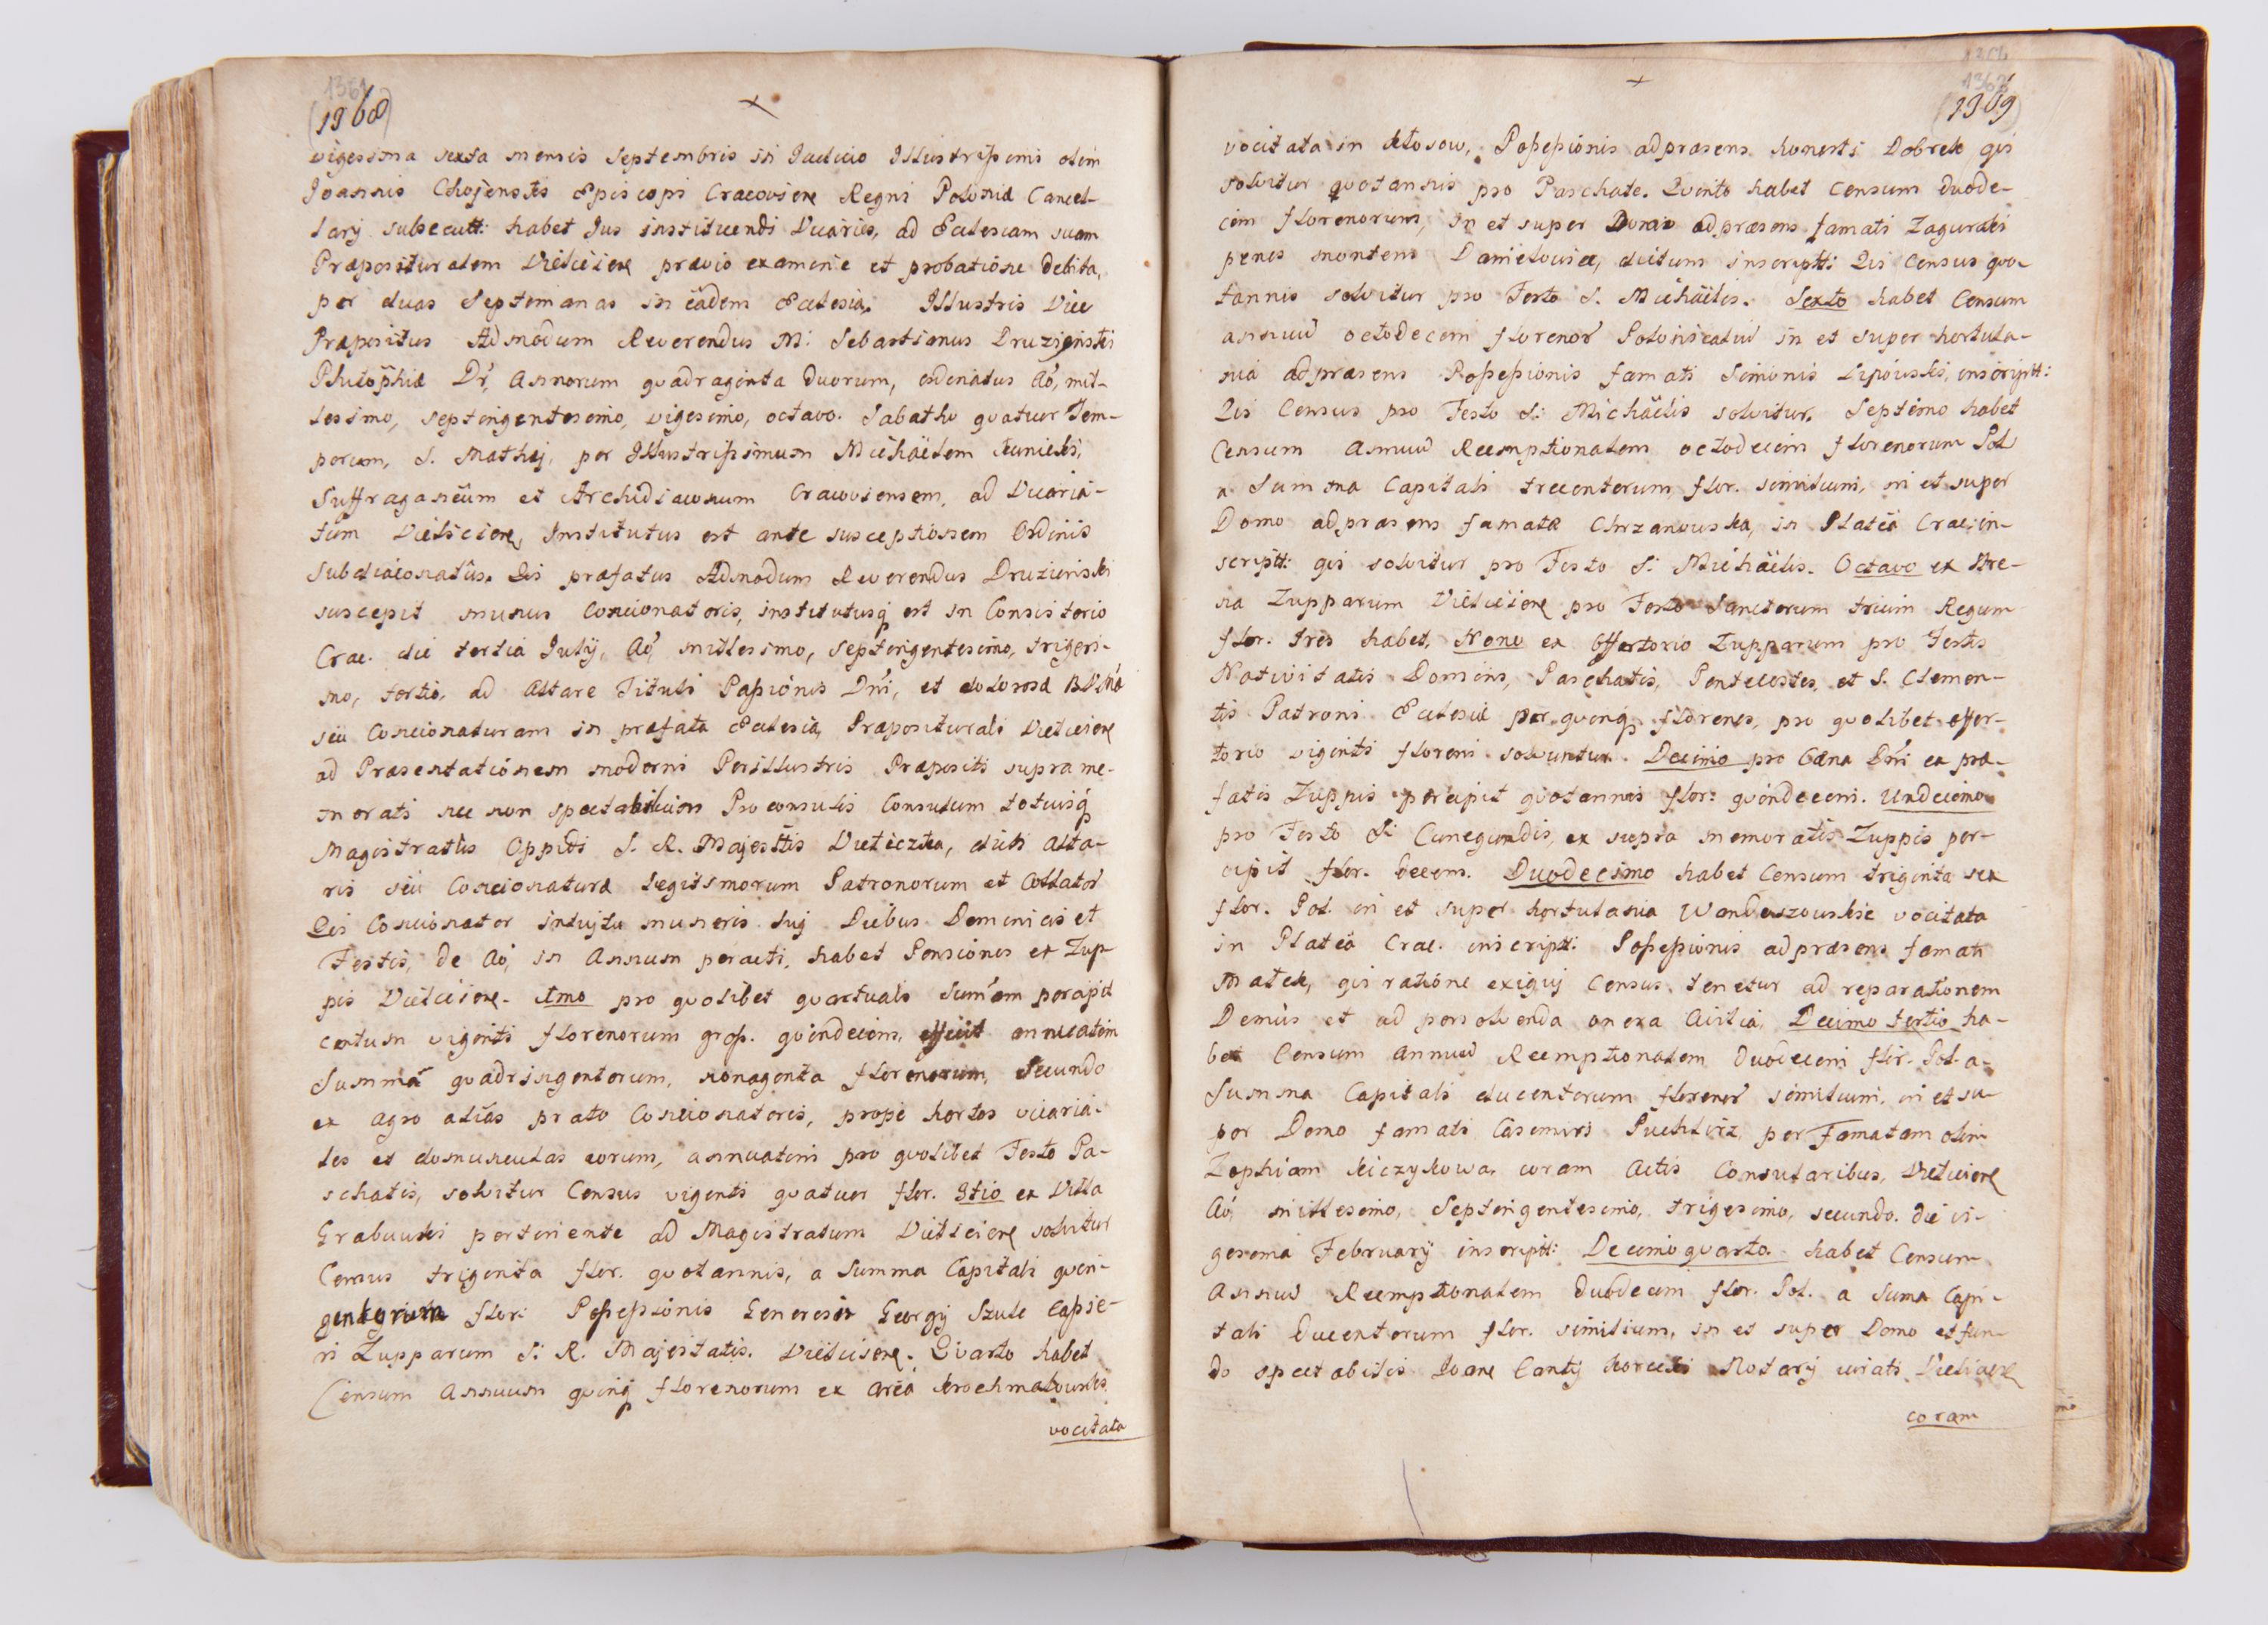 1361
(1368)
vigesima sexta mensis Septembris in Iudicio Illustrissimi olim
Joannis Chojenski Episcopi Cracoviens Regni Poloniæ Cancel-
larij subsecutt: habet Jus instituendi Vicarios, ad Ecclesiam suam
Præposituralem Vieliciens prævio examine et probatione debita,
per duas Septimanas in eâdem Ecclesia. Illustris Vice
Præpositus Admodum Reverendus M: Sebastianus Druzieński
Philöphiæ Dr, Annorum quadraginta duorum, ordinatus Aö, mil-
lesimo, septingentesimo, vigesimo, octavo. Sabatho quatuor Tem-
porum, S. Mathej, per Illustrissimum Michaëlem Kunicki,
Suffraganeum et Archidiaconum Cracoviensem, ad Vicaria-
tum Vieliciens, Institutus est ante susceptionem Ordinis
Subdiaconatûs. Qis præfatus Admodum Reverendus Druzieński
suscepit munus Concionatoris, institutusq est in Consistorio
Crac. die tertia Julij, Aö, millesimo, septingentesimo, trigesi-
mo, tertio, ad Altare Tituli Passionis Dni, et dolorosæ BVMæ
seu Concionaturam in præfata Ecclesia, Præposituralis Vieliciens
ad Præsentationem moderni Perillustris Præpositi supra me-
morati nec non spectabilium Proconsulis Consulum totiusq
Magistratûs Oppidi S. R. Majesttis Vieliczka, dicti Alta-
ris seu Concionaturæ Legitimorum Patronorum et Collator
Qis Concionator intuitu muneris sui Diebus Dominicis et
Festis, de Aö, in Annum peracti, habet Pensiones ex Zup-
pis Vieliciens. 1mo pro quolibet quartuali Sumam percipit
centum viginti florenorum gros. quindecim, efficit annuatim
Summa quadringentorum, nonaginta florenorum, Secundo
ex agro aliâs prato Concionatoris, propè hortos vicaria-
les et domunculas eorum, annuatim pro quolibet Festo Pa-
schatis, solvitur Census viginti quatuor flor. 3tio ex Villa
Grabuwki pertinente ad Magistratum Vieliciens solvitur
Census triginta flor. quotannis, a Summa Capitali quin-
gentorum flor: Possessionis Generosi Georgij Szule Capie-
ri Zupparum S: R. Majestatis. Vieliciens. Quarto habet
Censum Annuum quinq florenorum ex Area Krochmalowski
vocitata
1362
(1369)
vocitata in Kłosow, Possessionis adpræsens honesti Dobrek qis
solvitur quotannis pro Paschate. Quinto habet Censum duode-
cim florenorum, in et super Domo adpræsens famati Zagurski
penes montem Danielowice, dictum inscriptt: Qis Census quo-
tannis solvitur pro Festo S. Michaëlis. Sexto habet Censum
annuu octodecem florenor Polonicaliu in et super hortula-
nia adpræsens Possessionis famati Simonis Lipowski, inscriptt:
Qis Census pro Festo S: Michaëlis solvitur. Septimo habet
Censum Annuu Reemptionalem octodecim florenorum Pol
a Summa Capitali trecentorum, flor. similium, in et super
Domo adpræsens famatæ Chrzanowska, in Plateâ Crac: in-
scriptt: qis solvitur pro Festo S: Michaëlis. Octavo ex Stre-
na Zupparum Vieliciens pro Festo Sanctorum trium Regum
flor. tres habet, Nono ex Offertorio Zupparum pro Festis
Nativitatis Domini, Paschatis, Pentecostes, et S. Clemen-
tis Patroni Ecclesiæ per quinq florenos, pro quolibet offer-
torio viginti floreni solvuntur. Decimo pro Cæna Dni ex præ-
fatis Zuppis percipit quotannis flor: quindecem. Undecimo
pro Festo S: Cunegundis, ex supra memoratis Zuppis per-
cipit flor. decem. Duodecimo habet Censum triginta sex
flor. Pol. in et super hortulania Wondaszowskie vocitata
in Plateâ Crac. inscriptt: Possessionis adpræsens famati
Małek, qis ratióne exiguj Census, tenetur ad reparationem
Domûs et ad persolvenda onera Civilia, Decimo tertio ha-
bet Censum Annuu Reemptionalem duodecem flor. Pol. a
Summa Capitali ducentorum florenor similium, in et su-
per Domo famati Casimiri Puchlirz, per Famatam olim
Zophiam Kiczykowa, coram Actis Consularibus, Vieliciens
Aö, millesimo, Septingentesimo, trigesimo, secundo. die vi-
gesima February inscriptt: Decimo quarto habet Censum
Annuu Reemptionalem duodecim flor. Pol. a Suma Capi-
tali Ducentorum flor. similium, in et super Domo et fun-
do spectabilis Joane Canty Notarij iurati Vieliciens
coram